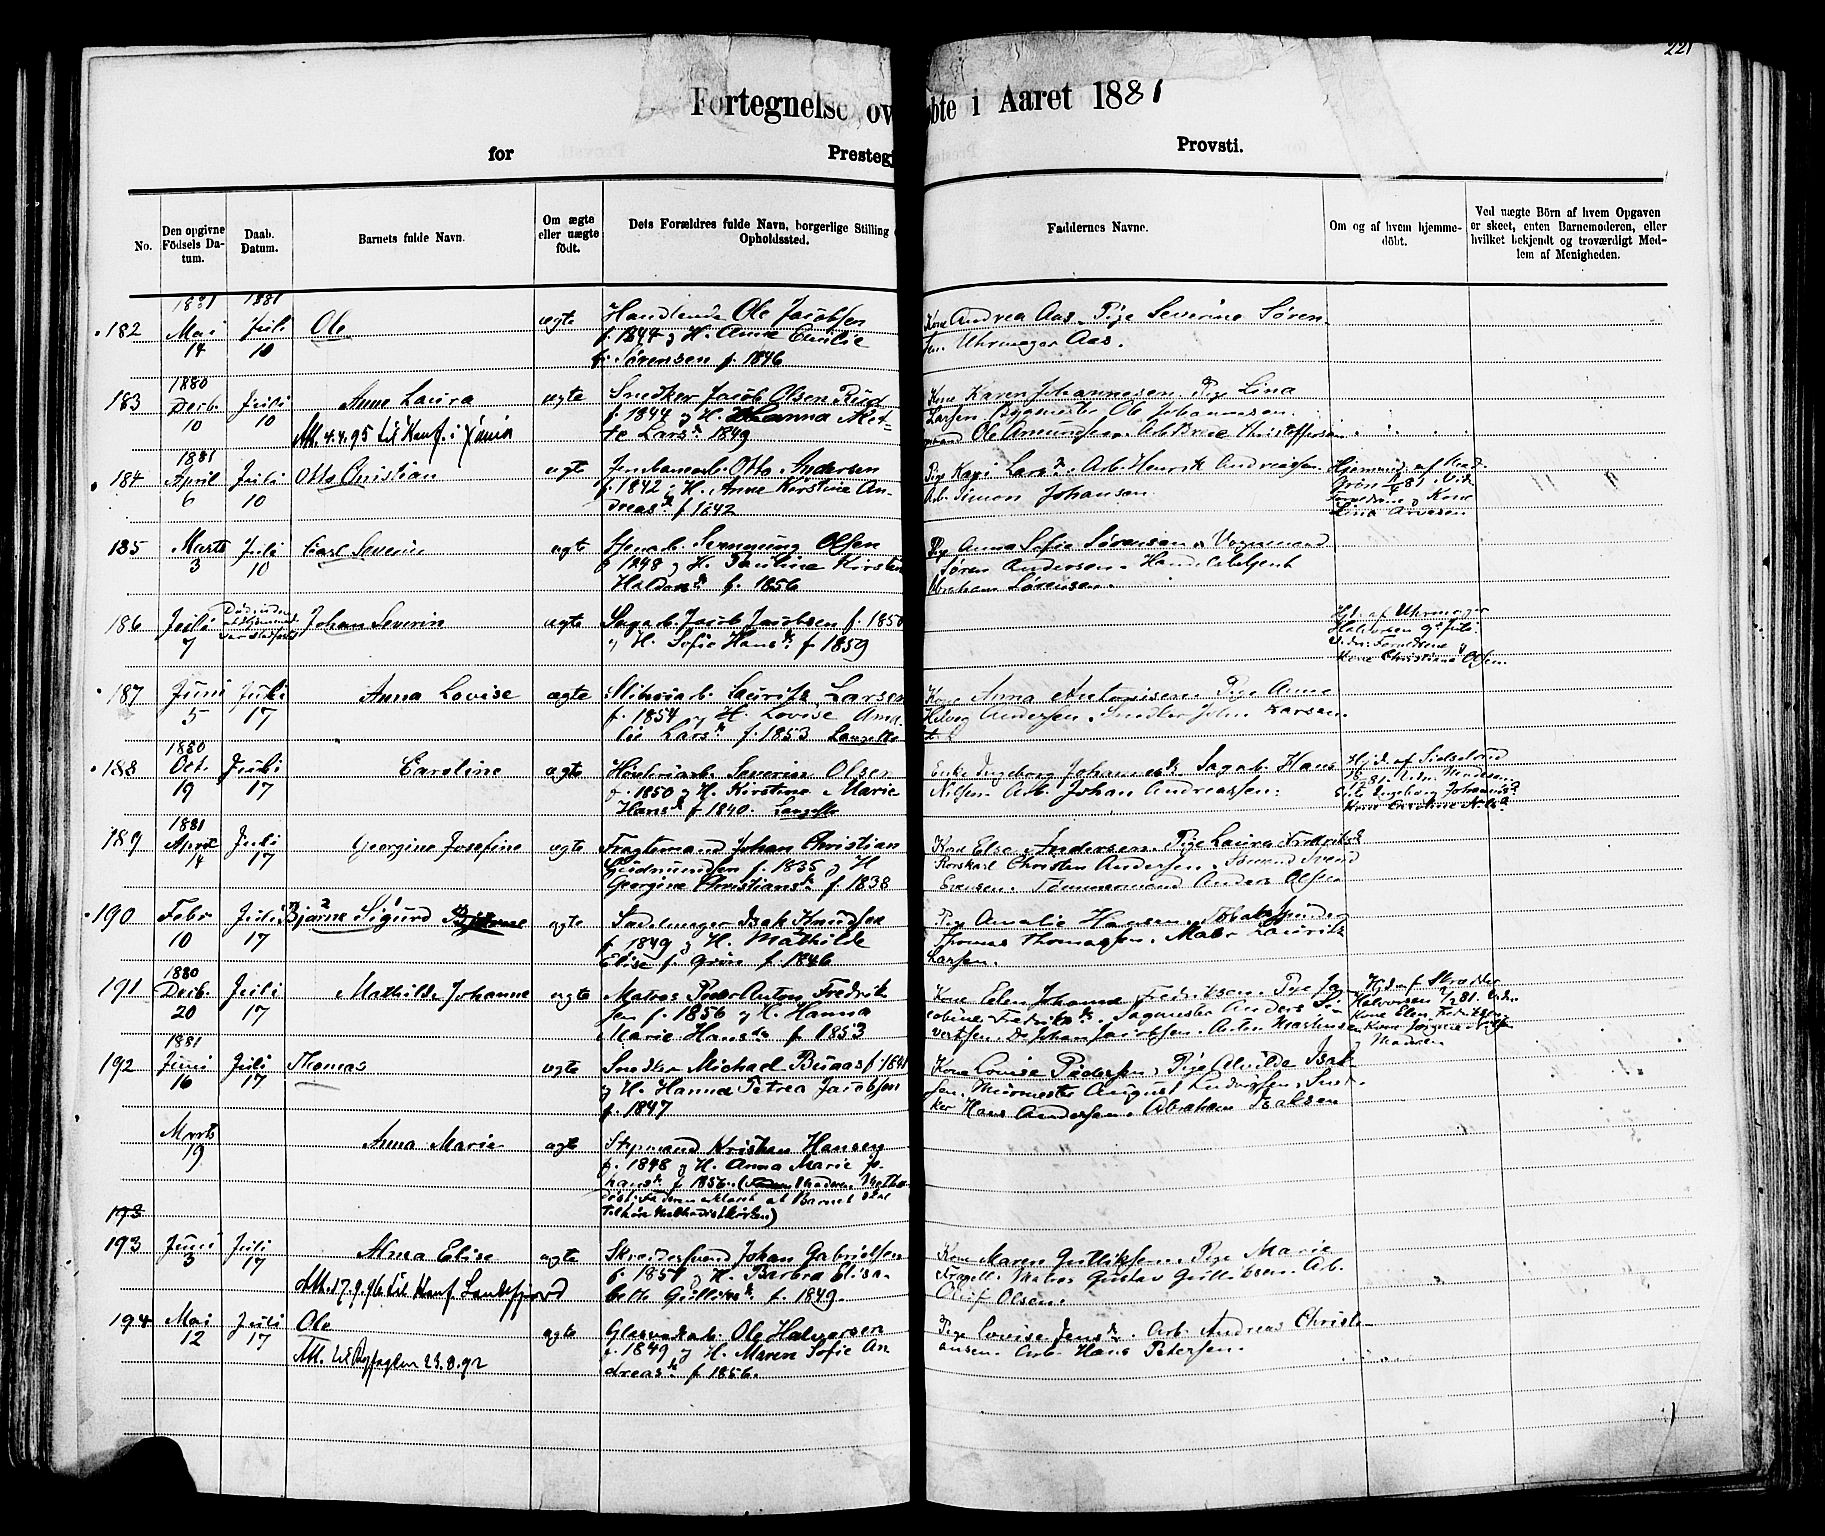 221
Fortegnelse ov
øbte i Aaret 1881
for
Prestegj
Provsti.
No.
Den opgivne Födsels Da-tum.
Daab. Datum.
Barnets fulde Navn.
Om ægte eller uægte födt.
Dets Forældres fulde Navn, borgerlige Stilling
Opholdssted.
Faddernes Navne.
Om og af hvem hjemme-döbt.
Ved uægte Börn af hvem Opgaven er skeet, enten Barnemoderen, eller hvilket bekjendt og troværdigt Med-lem af Menigheden.
182 1881 Mai 14 1881 Juli 10 Ole ægte Handlende Ole Jacobsen
f. 1844 og H. Anna Emilie
f. Sørensen f. 1846
Kone Andrea Aas. Pige Severine Søren-
sen. Uhrmager Aas.
183 1880 Decb. 10 Juli 10 Anne Laura ægte Snedker Jacob Olsen Rud
f. 1844 og H. Hanna Met-
te Larsd. 1849
Att. 4.4.95 til Konf. i Xania
Kone Karen Johannesen. Pige Lina
Larsen. Bygmester Ole Johannesen.
Ole Amundsen. Christoffersen
184 1881 April 6 Juli 10 Otto Christian ægte Jernbanearb. Otto Andersen
f. 1842 og H. Anne Kirstine An-
dreasd. f. 1842
Pige Kari Larsd. Arb. Henrik Andreassen
Arb. Simon Johansen.
Hjemmed. af
Forældrene og Kone
Lina
185 Marts 3 Juli 10 Carl Severin ægte Svennung Olsen
f. 1848 og H. Pauline Kirstine
Haldorsd. f. 1856
Pige Anna Sofie Sørensen. Vognmand
Søren Andersen. Handelsbetjent
Abraham Sørensen.
186 Juli 7 Johan Severin ægte Sagarb. Jacob Jacobsen f. 1850
og H. Sofie Hansd. f. 1859
Hjd. af Uhrmager
Halvorsen 9de Juli.
Vidn. Forældrene og
Kone Christiane Olsen.
187 Juni 5 Juli 17 Anna Lovise ægte Laurits Larsen
f. 1854 og H. Lovise Ama-
lie Larsd. f. 1853 Langestr.
Kone Anna Antonisen. Pige Anne
Hedvig Andersen. Snedker John Larsen.
188 1880 Oct. 19 Juli 17 Caroline ægte Høvleriarb. Severin Olsen
f. 1850 og H. Kirstine Marie
Hansd. f. 1840. Langestr.
Enke Ingeborg Johannesd. Sagarb. Hans
Nilsen. Arb. Johan Andreassen.
Hjd. af
Enke Ingeborg Johannsd.
Kone Caroline
189 1881 April 14 Juli 17 Georgine Josefine ægte Fragtemand Johan Christian
Gudmundsen f. 1835 og H.
Georgine Christiansd. f. 1838
Kone Else Andersen. Pige Laura Fredriksd.
Korskarl Christen Andersen. Sømand Svend
Evensen. Tømmermand Anders Olsen
190 Febr 10 Juli 17 Bjarne Sigurd ægte Sadelmager Isak Knudsen
f. 1849 og H. Mathilde
Elise f. Grøn f. 1846
Pige Amalie Hansen. Tobakspinder
Thomas Thomassen. Maler Laurits
Larsen.
191 1880 Decb. 20 Juli 17 Mathilde Johanne ægte Matros Peder Anton Fredrik-
sen f. 1856 og H. Hanna
Marie Hansd. f. 1853
Kone Elen Johanne Fredriksen. Pige Ja-
cobine Fredriksd. Sagmester Anders Si-
vertsen. Do Johan Jacobsen. Anton Martinsen
Hjd. af Skrædder
Halvorsen 2/2 81. Vidn.
Kone Elen Fredriksen,
og Moderen
192 1881 Juni 16 Juli 17 Thomas ægte Snedker Michael Buaas f. 1841
og H. Hanna Petrea Jacobsen
f. 1847
Kone Lovise Pedersen. Pige Alvilde Isak-
sen. Murmester August Andersen. Sned-
ker Hans Andersen. Abraham Isaksen
Marts 19 Anna Marie ægte Styrmand Kristian Hansen
f. 1848 og H. Anna Marie Jo-
hansd. f. 1856. (Moderen Metho-
dist. Faderen at Barnet skal
tilhøre Methodistkirken)
193
193 Juni 3 Juli 17 Alma Elise ægte Skræddersvend Johan Gabrielsen
f. 1851 og H. Barbra Elisa-
beth Gulliksd. f. 1849.
Att. 17.9.96 til Konf. Sandefjord
Kone Maren Gulliksen. Pige Marie
Matros Gustav Gulliksen. Arb.
Oluf Olsen.
194 Mai 12 Juli 17 Ole ægte Ole Halvorsen
f. 1849 og H. Maren Sofie An-
dreasd. f. 1856.
Att. til Byfogden 23.8.92
Pige Lovise Jensd. Arb. Andreas Christi-
ansen. Arb. Hans Petersen.